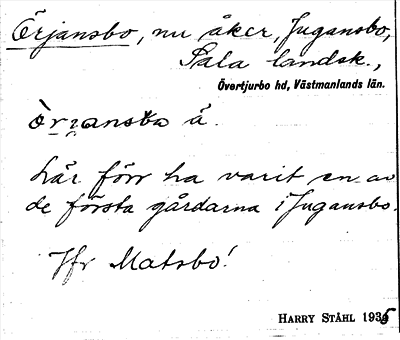 Örjansbo, nu åker, Jugansbo,
Sala landsk.,
Övertjurbo hd, Västmanlands län.
å.
Lär förr ha varit en av
de första gårdarna i Jugansbo.
Jfr Matsbo!
HARRY STÅHL 1935